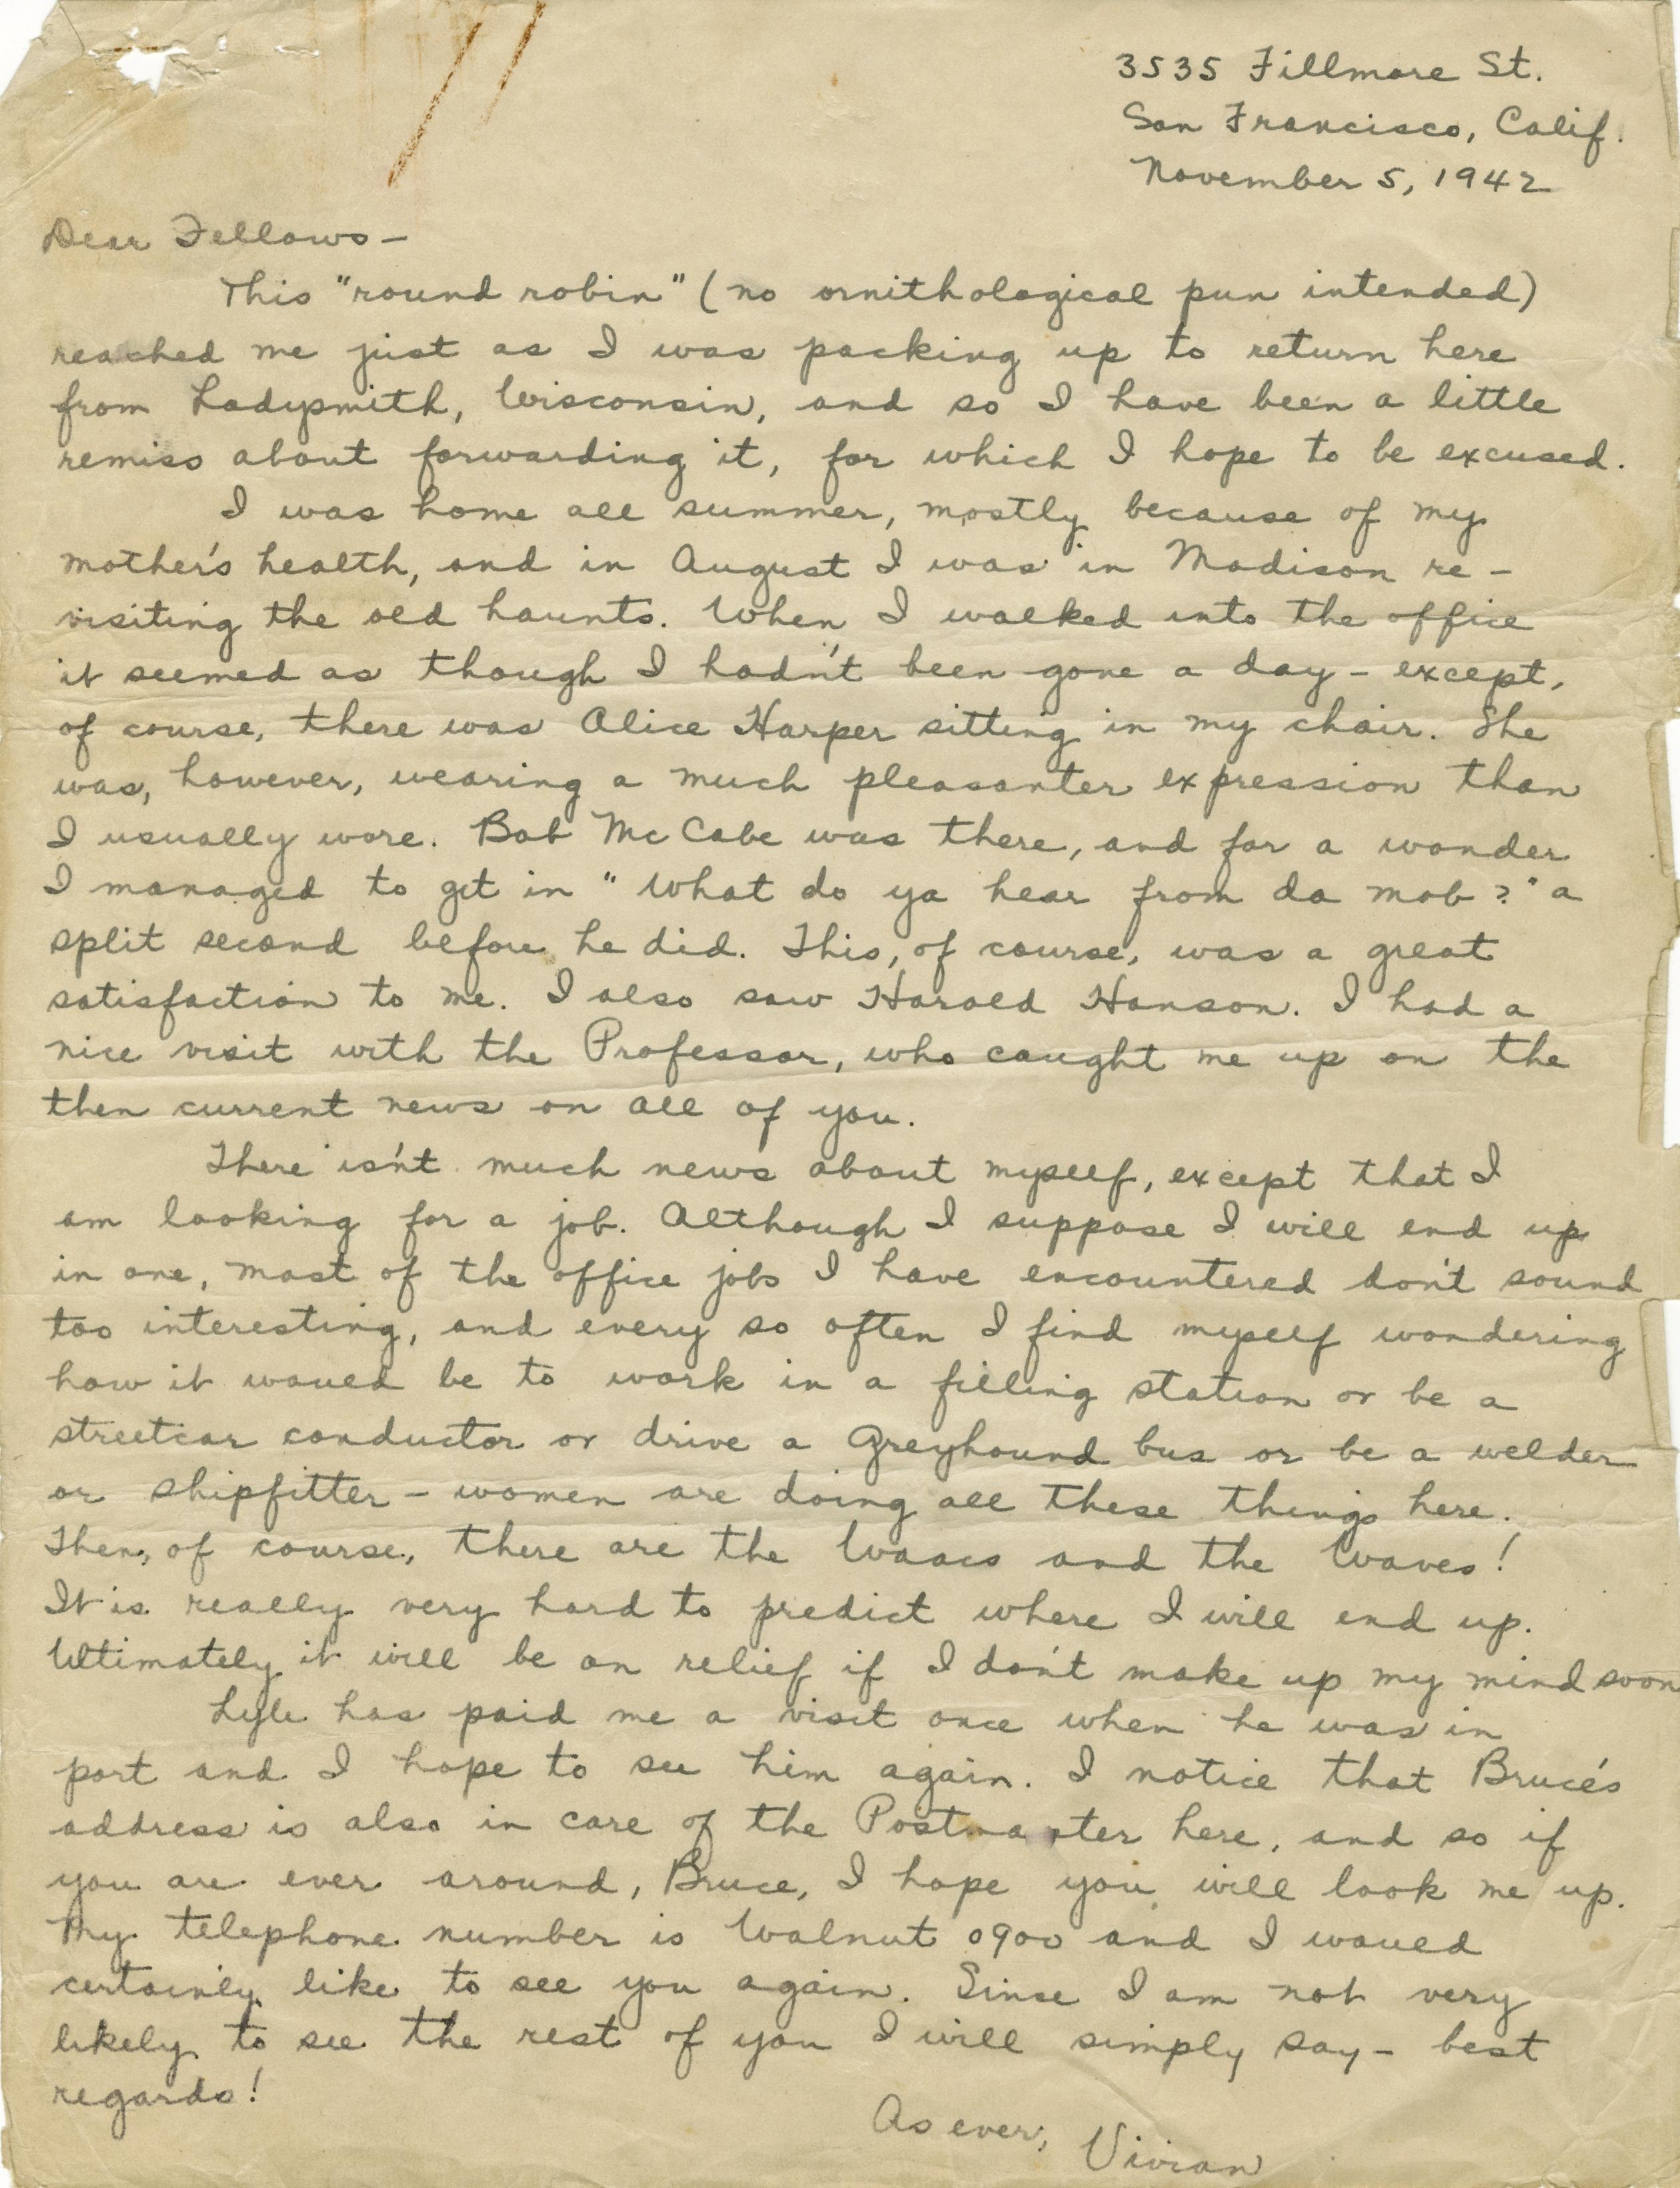 3535 Fillmore St.
San Francisco, Calif.
November 5, 1942
Dear Fellows-
This "round robin" (no ornithological pun intended)
reached me just as I was packing up to return here
from Ladysmith, Wisconsin, and so I have been a little
remiss about forwarding it, for which I hope to be excused.
I was home all summer, mostly because of my
mother's health, and in August I was in Madison re-
visiting the old haunts. When I walked into the office
it seemed as though I hadn't been gone a day - except,
of course, there was Alice Harper sitting in my chair. She
was, however, wearing a much pleasanter expression than
I usually wore. Bob McCabe was there, and for a wonder
I managed to get in "What do ya hear from da mob?" a
split second before he did. This, of course, was a great
satisfaction to me. I also saw Harold Hanson. I had a
nice visit with the Professor, who caught me up on the
then current news on all of you.
There isn't much news about myself, except that I
am looking for a job. Although I suppose I will end up
in one, most of the office jobs I have encountered don't sound
too interesting, and every so often I find myself wondering
how it would be to work in a filling station or be a
streetcar conductor or drive a Greyhound bus or be a welder
or shipfitter - women are doing all these things here.
Then, of course, there are the Waacs and the Waves!
It is really very hard to predict where I will end up.
Ultimately it will be on relief if I don't make up my mind soon
Lyle has paid me a visit once when he was in
port and I hope to see him again. I notice that Bruce's
address is also in care of the Postmaster here, and so if
you are ever around, Bruce, I hope you will look me up.
My telephone number is Walnut 0900 and I would
certainly like to see you again. Since I am not very
likely to see the rest of you I will simply say - best
regards!
As ever,
Vivian